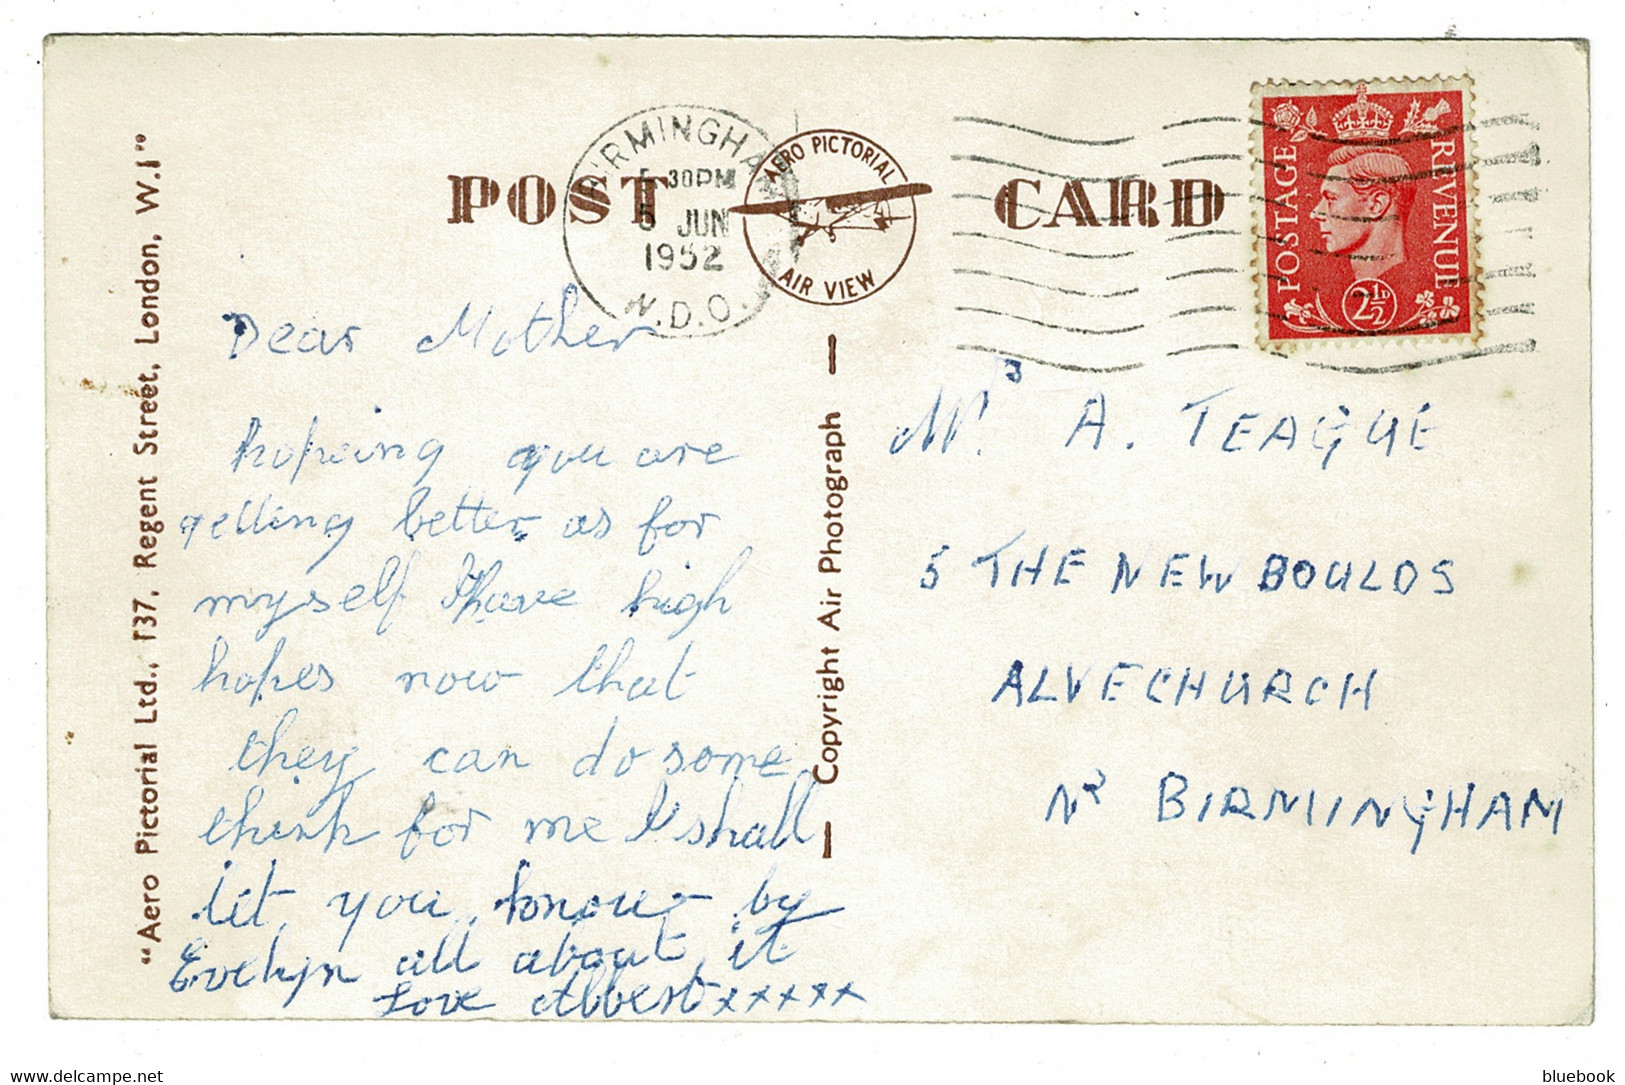 "Aero Pictorial Ltd., 137, Regent Street, London, W.1"
POST CARD
BIRMINGHAM
5 30PM
5 JUN
1952
N.D.O.
AERO PICTORIAL
AIR VIEW
POSTAGE
REVENUE
2½D
Dear Mother
hopeing you are
getting better as for
myself I have high
hopes now that
they can do some
think for me I shall
let you know by
Evelyn all about it
Love Albert xxxxx
— Copyright Air Photograph —
Mrs A. TEAGUE
5 THE NEW BOULDS
ALVECHURCH
Nr BIRMINGHAM
bluebook
www.delcampe.net